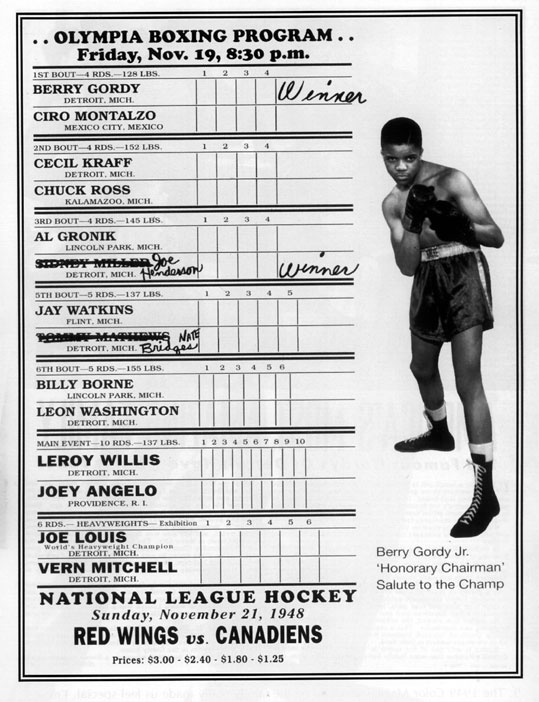 . . OLYMPIA BOXING PROGRAM . .
Friday, Nov. 19, 8:30 p.m.
1ST BOUT—4 RDS.—128 LBS. 1 2 3 4
BERRY GORDY Winner
DETROIT, MICH.
CIRO MONTALZO
MEXICO CITY, MEXICO
2ND BOUT—4 RDS.—152 LBS. 1 2 3 4
CECIL KRAFF
DETROIT, MICH.
CHUCK ROSS
KALAMAZOO, MICH.
3RD BOUT—4 RDS.—145 LBS. 1 2 3 4
AL GRONIK
LINCOLN PARK, MICH.
SIDNEY MILLER Joe
DETROIT, MICH. Henderson Winner
5TH BOUT—5 RDS.—137 LBS. 1 2 3 4 5
JAY WATKINS
FLINT, MICH.
TOMMY MATHEWS NATE
DETROIT, MICH. Bridges
6TH BOUT—5 RDS.—155 LBS. 1 2 3 4 5 6
BILLY BORNE
LINCOLN PARK, MICH.
LEON WASHINGTON
DETROIT, MICH.
MAIN EVENT—10 RDS.—137 LBS. 1 2 3 4 5 6 7 8 9 10
LEROY WILLIS
DETROIT, MICH.
JOEY ANGELO
PROVIDENCE, R. I.
6 RDS.— HEAVYWEIGHTS— Exhibition 1 2 3 4 5 6
JOE LOUIS
World's Heavyweight Champion
DETROIT, MICH.
VERN MITCHELL
DETROIT, MICH.
NATIONAL LEAGUE HOCKEY
Sunday, November 21, 1948
RED WINGS vs. CANADIENS
Prices: $3.00 - $2.40 - $1.80 - $1.25
Berry Gordy Jr.
'Honorary Chairman'
Salute to the Champ